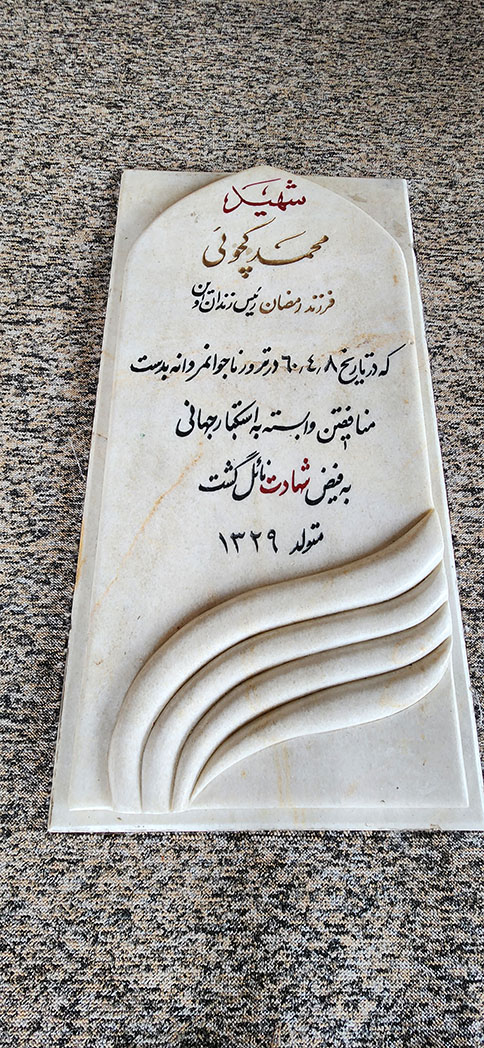 شهید
محمد کچوئی
فرزند رمضان رئیس زندان اوین
که در تاریخ ۶۰٫۴٫۸ در ترور ناجوانمردانه بدست
منافقین وابسته به استکبار جهانی
به فیض شهادت نائل گشت
متولد ۱۳۲۹